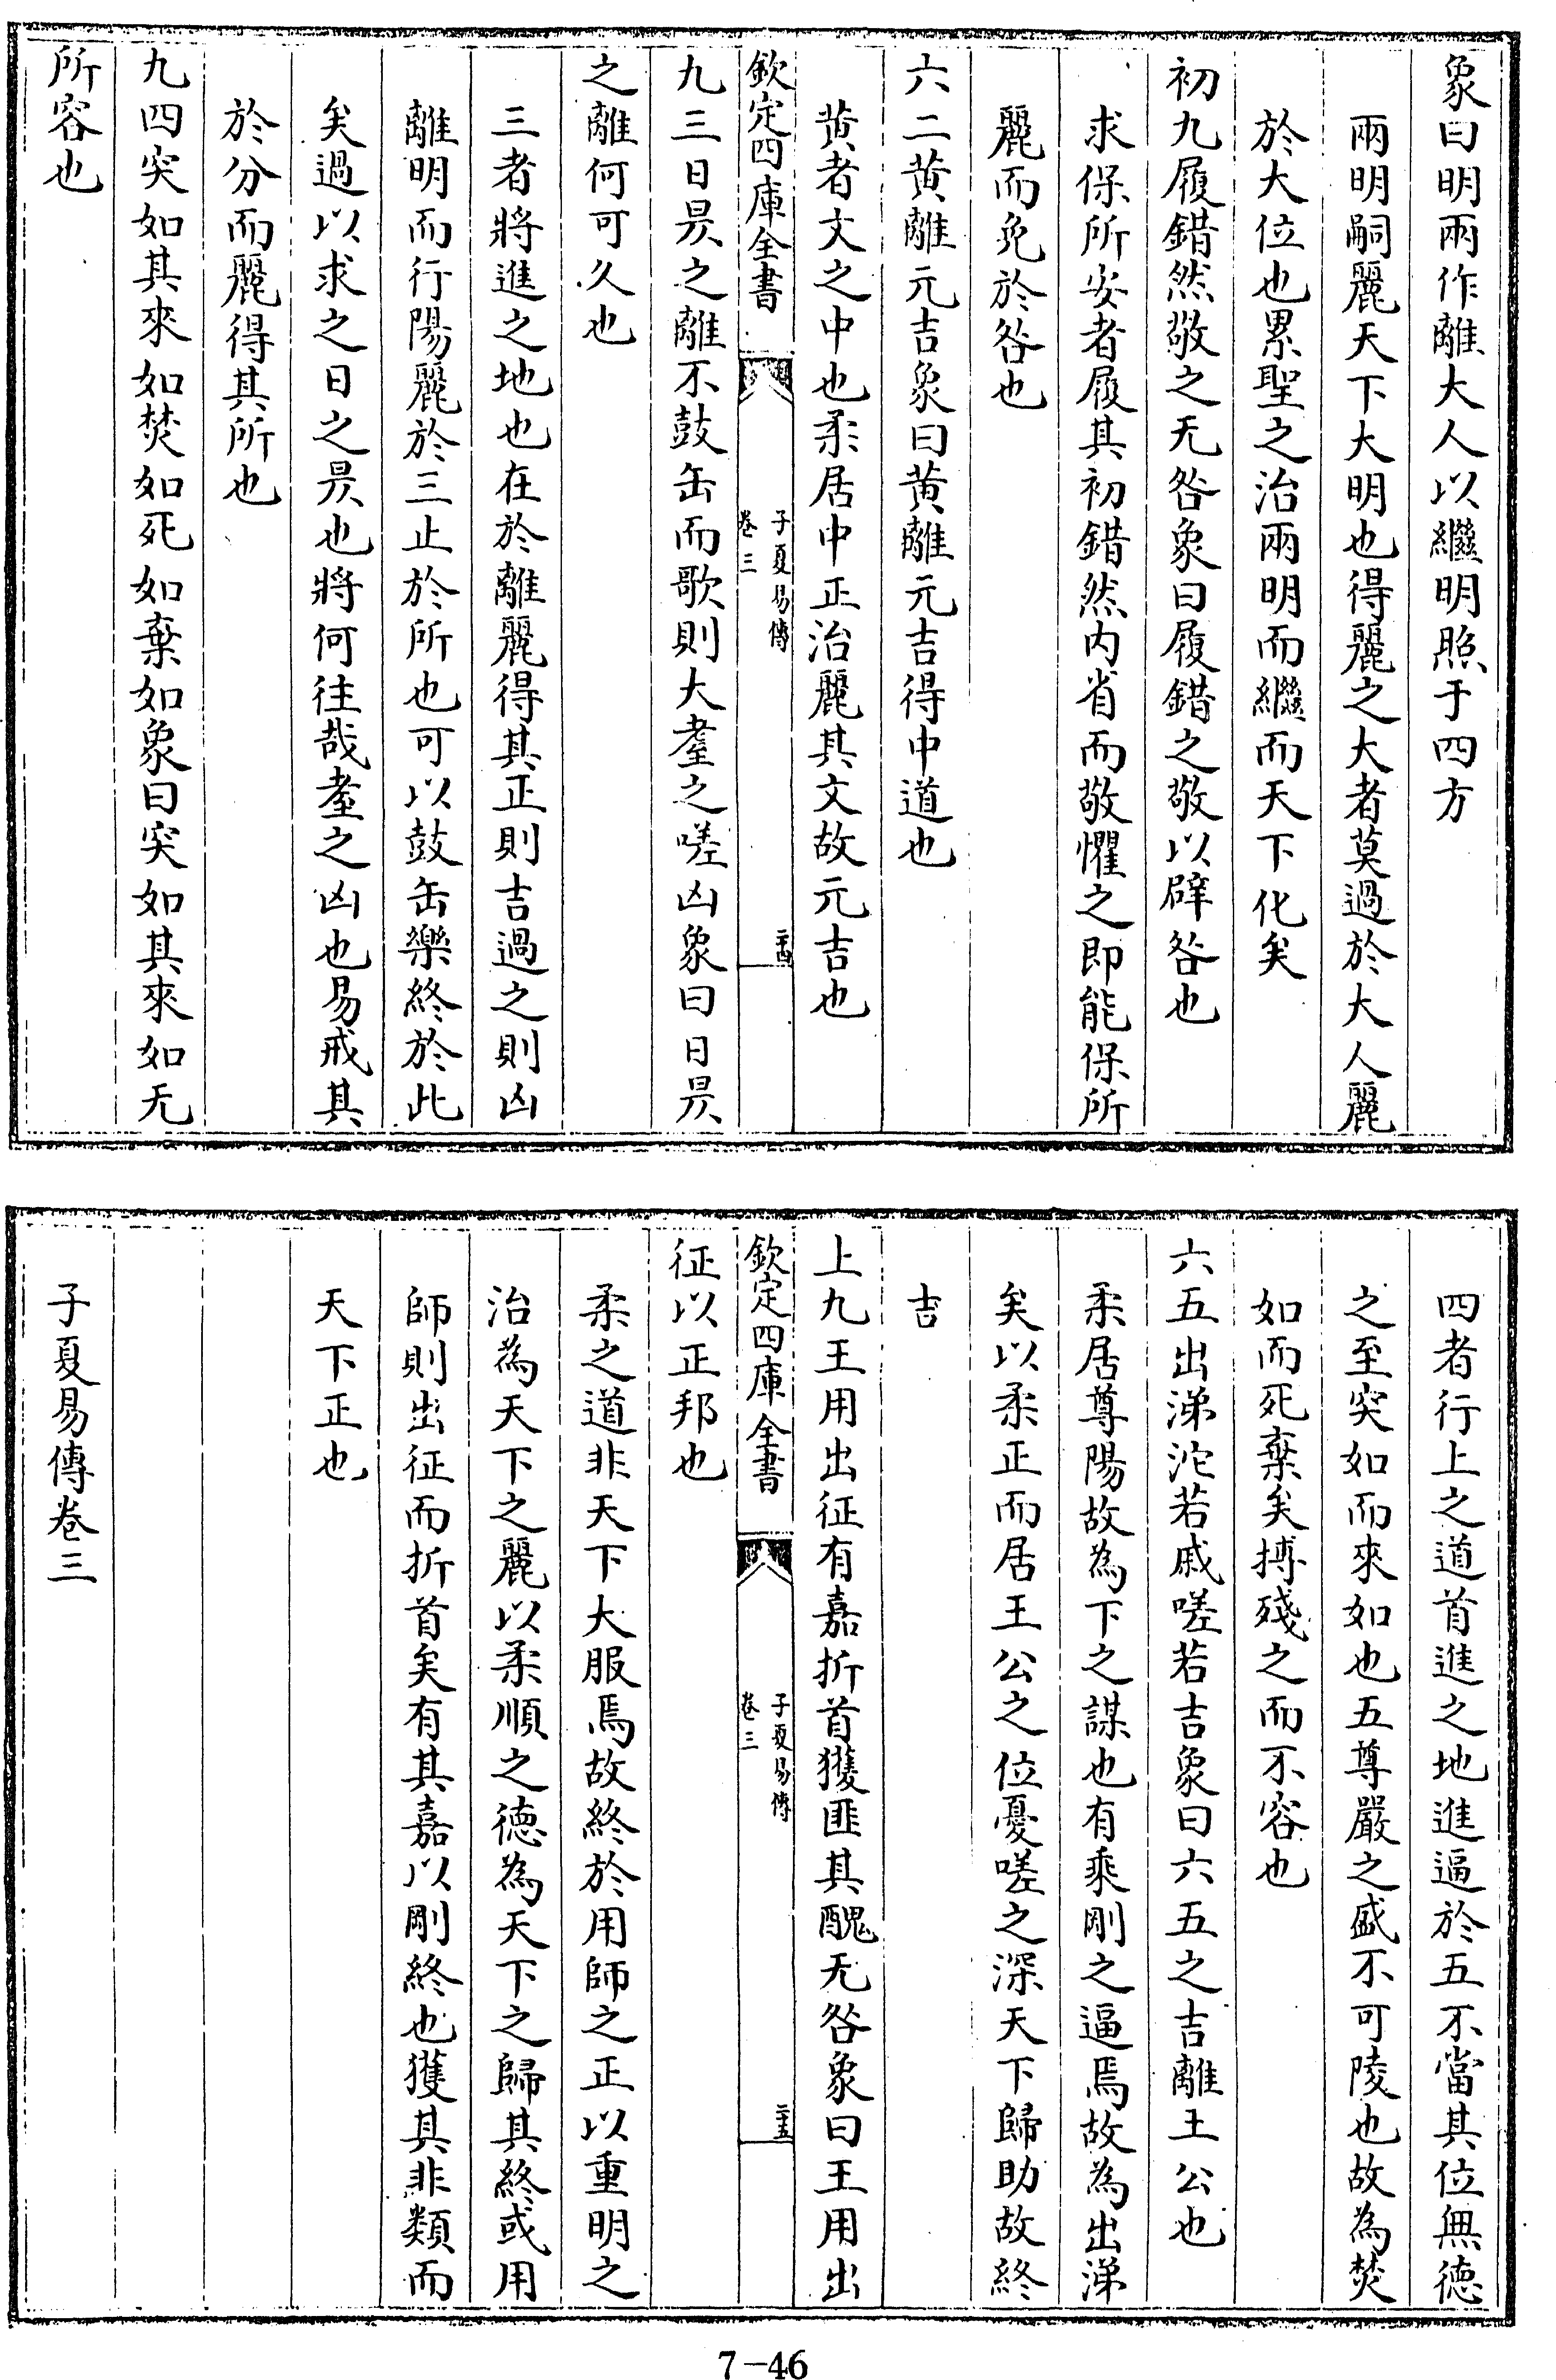 象曰明兩作離大人以繼明照于四方
兩明嗣麗天下大明也得麗之大者莫過於大人麗
於大位也累聖之治兩明而繼而天下化矣
初九履錯然敬之无咎象曰履錯之敬以辟咎也
求保所安者履其初錯然内省而敬懼之即能保所
麗而免於咎也
六二黄離元吉象曰黄離元吉得中道也
黄者文之中也柔居中正治麗其文故元吉也
欽定四庫全書
子夏易傳
卷三
二十四
九三日昃之離不鼓缶而歌則大耋之嗟凶象曰日昃
之離何可久也
三者將進之地也在於離麗得其正則吉過之則凶
離明而行陽麗於三止於所也可以鼓缶樂終於此
矣過以求之日之昃也將何往哉耋之凶也易戒其
於分而麗得其所也
九四突如其來如焚如死如棄如象曰突如其來如无
所容也
四者行上之道首進之地進逼於五不當其位無德
之至突如而來如也五尊嚴之盛不可陵也故為焚
如而死棄矣搏殘之而不容也
六五出涕沱若戚嗟若吉象曰六五之吉離王公也
柔居尊陽故為下之謀也有乘剛之逼焉故為出涕
矣以柔正而居王公之位憂嗟之深天下歸助故終
吉
上九王用出征有嘉折首獲匪其醜无咎象曰王用出
欽定四庫全書
子夏易傳
卷三
二十五
征以正邦也
柔之道非天下大服焉故終於用師之正以重明之
治為天下之麗以柔順之德為天下之歸其終或用
師則出征而折首矣有其嘉以剛終也獲其非類而
天下正也
子夏易傳卷三
7-46